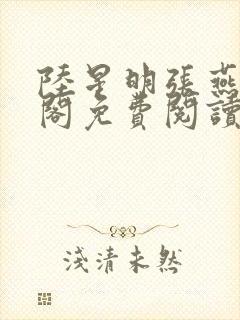 陸星明張燕
閣免費閱讀
淺清未然